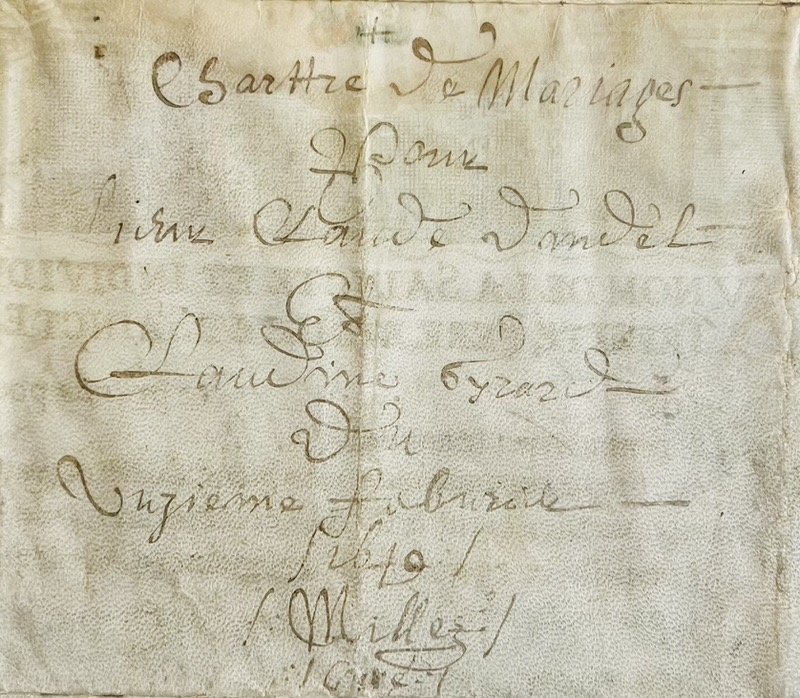 Charttre de Mariages
Pour
sieur Claude Dandel
Et
Claudine Gyrard
Du
Vnzieme feburier
1649
Millez
Curé